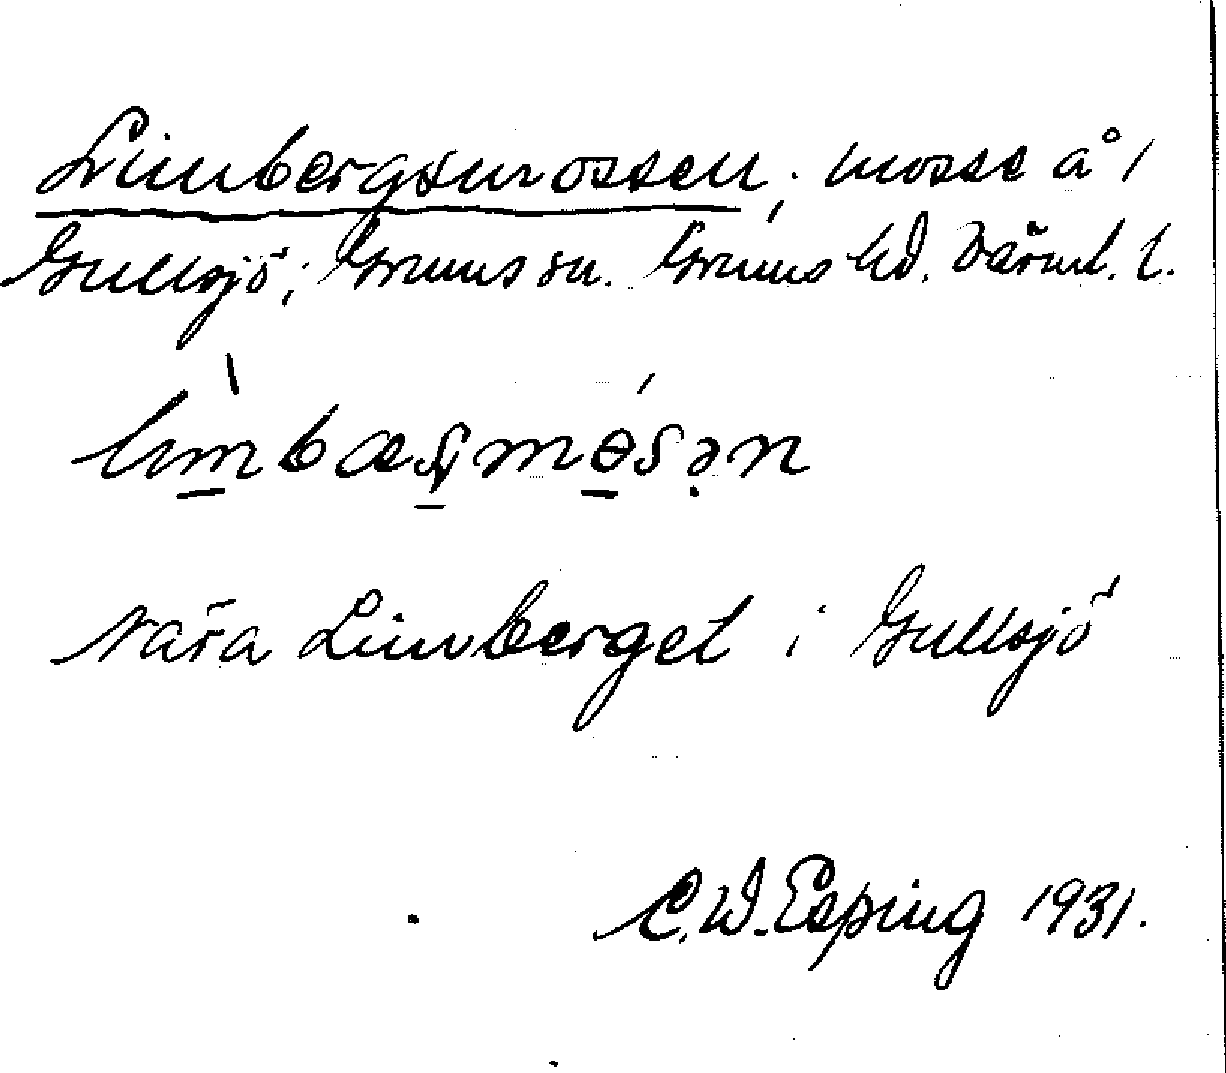 Limbergsmossen, mosse å
Gullsjö, Grums sn. Grums hd. Värml. l.
limbæs̨mɵsən
Nära Limberget i Gullsjö
C. W. Esping 1931.